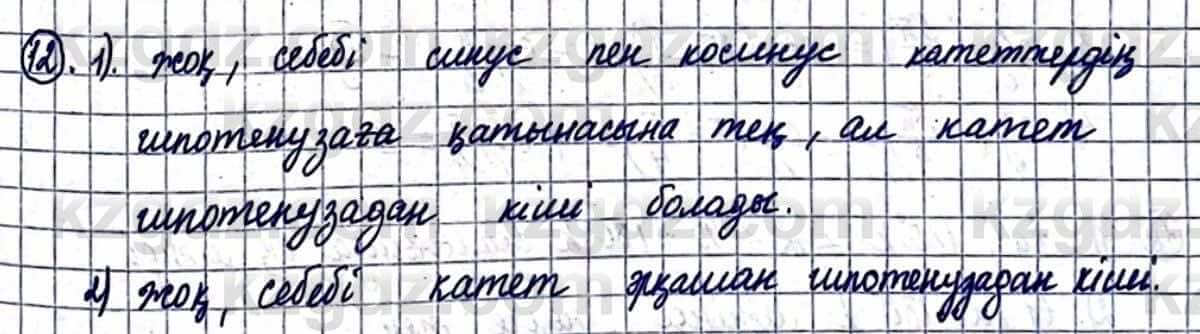 12). 1). жоқ, себебі синус пен косинус катеттердің
гипотенузаға қатынасына тең, ал катет
гипотенузадан кіші болады.
2) жоқ, себебі катет әрқашан гипотенузадан кіші.